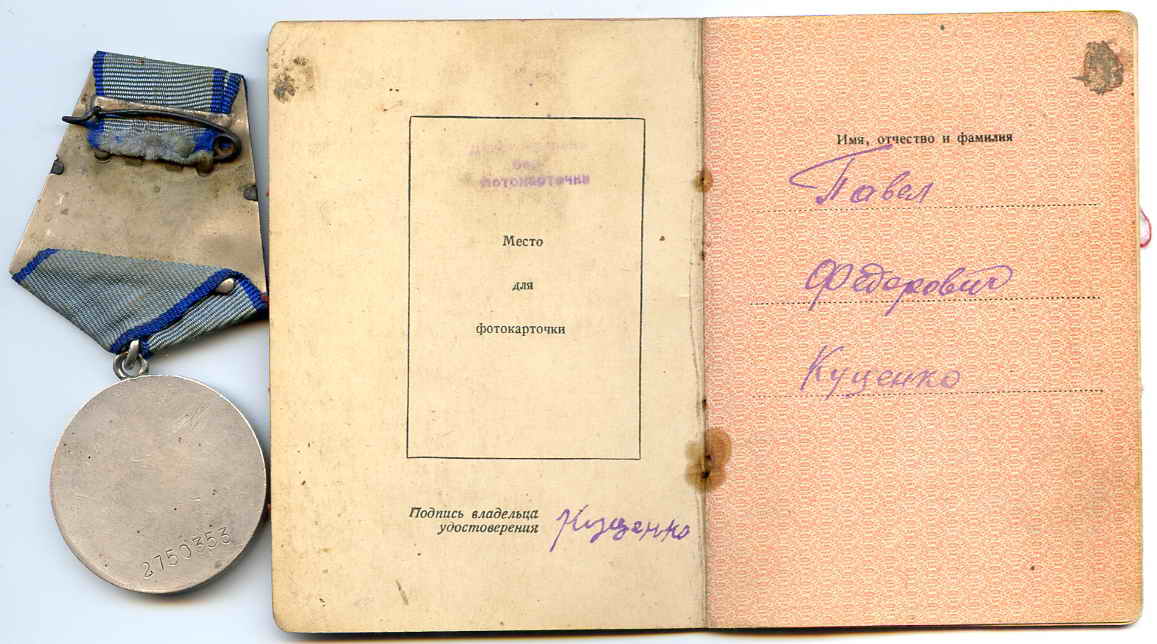 2750353
Действительно
без
фотокарточки
Место
для
фотокарточки
Подпись владельца
удостоверения
Куценко
Имя, отчество и фамилия
Павел
Федорович
Куценко